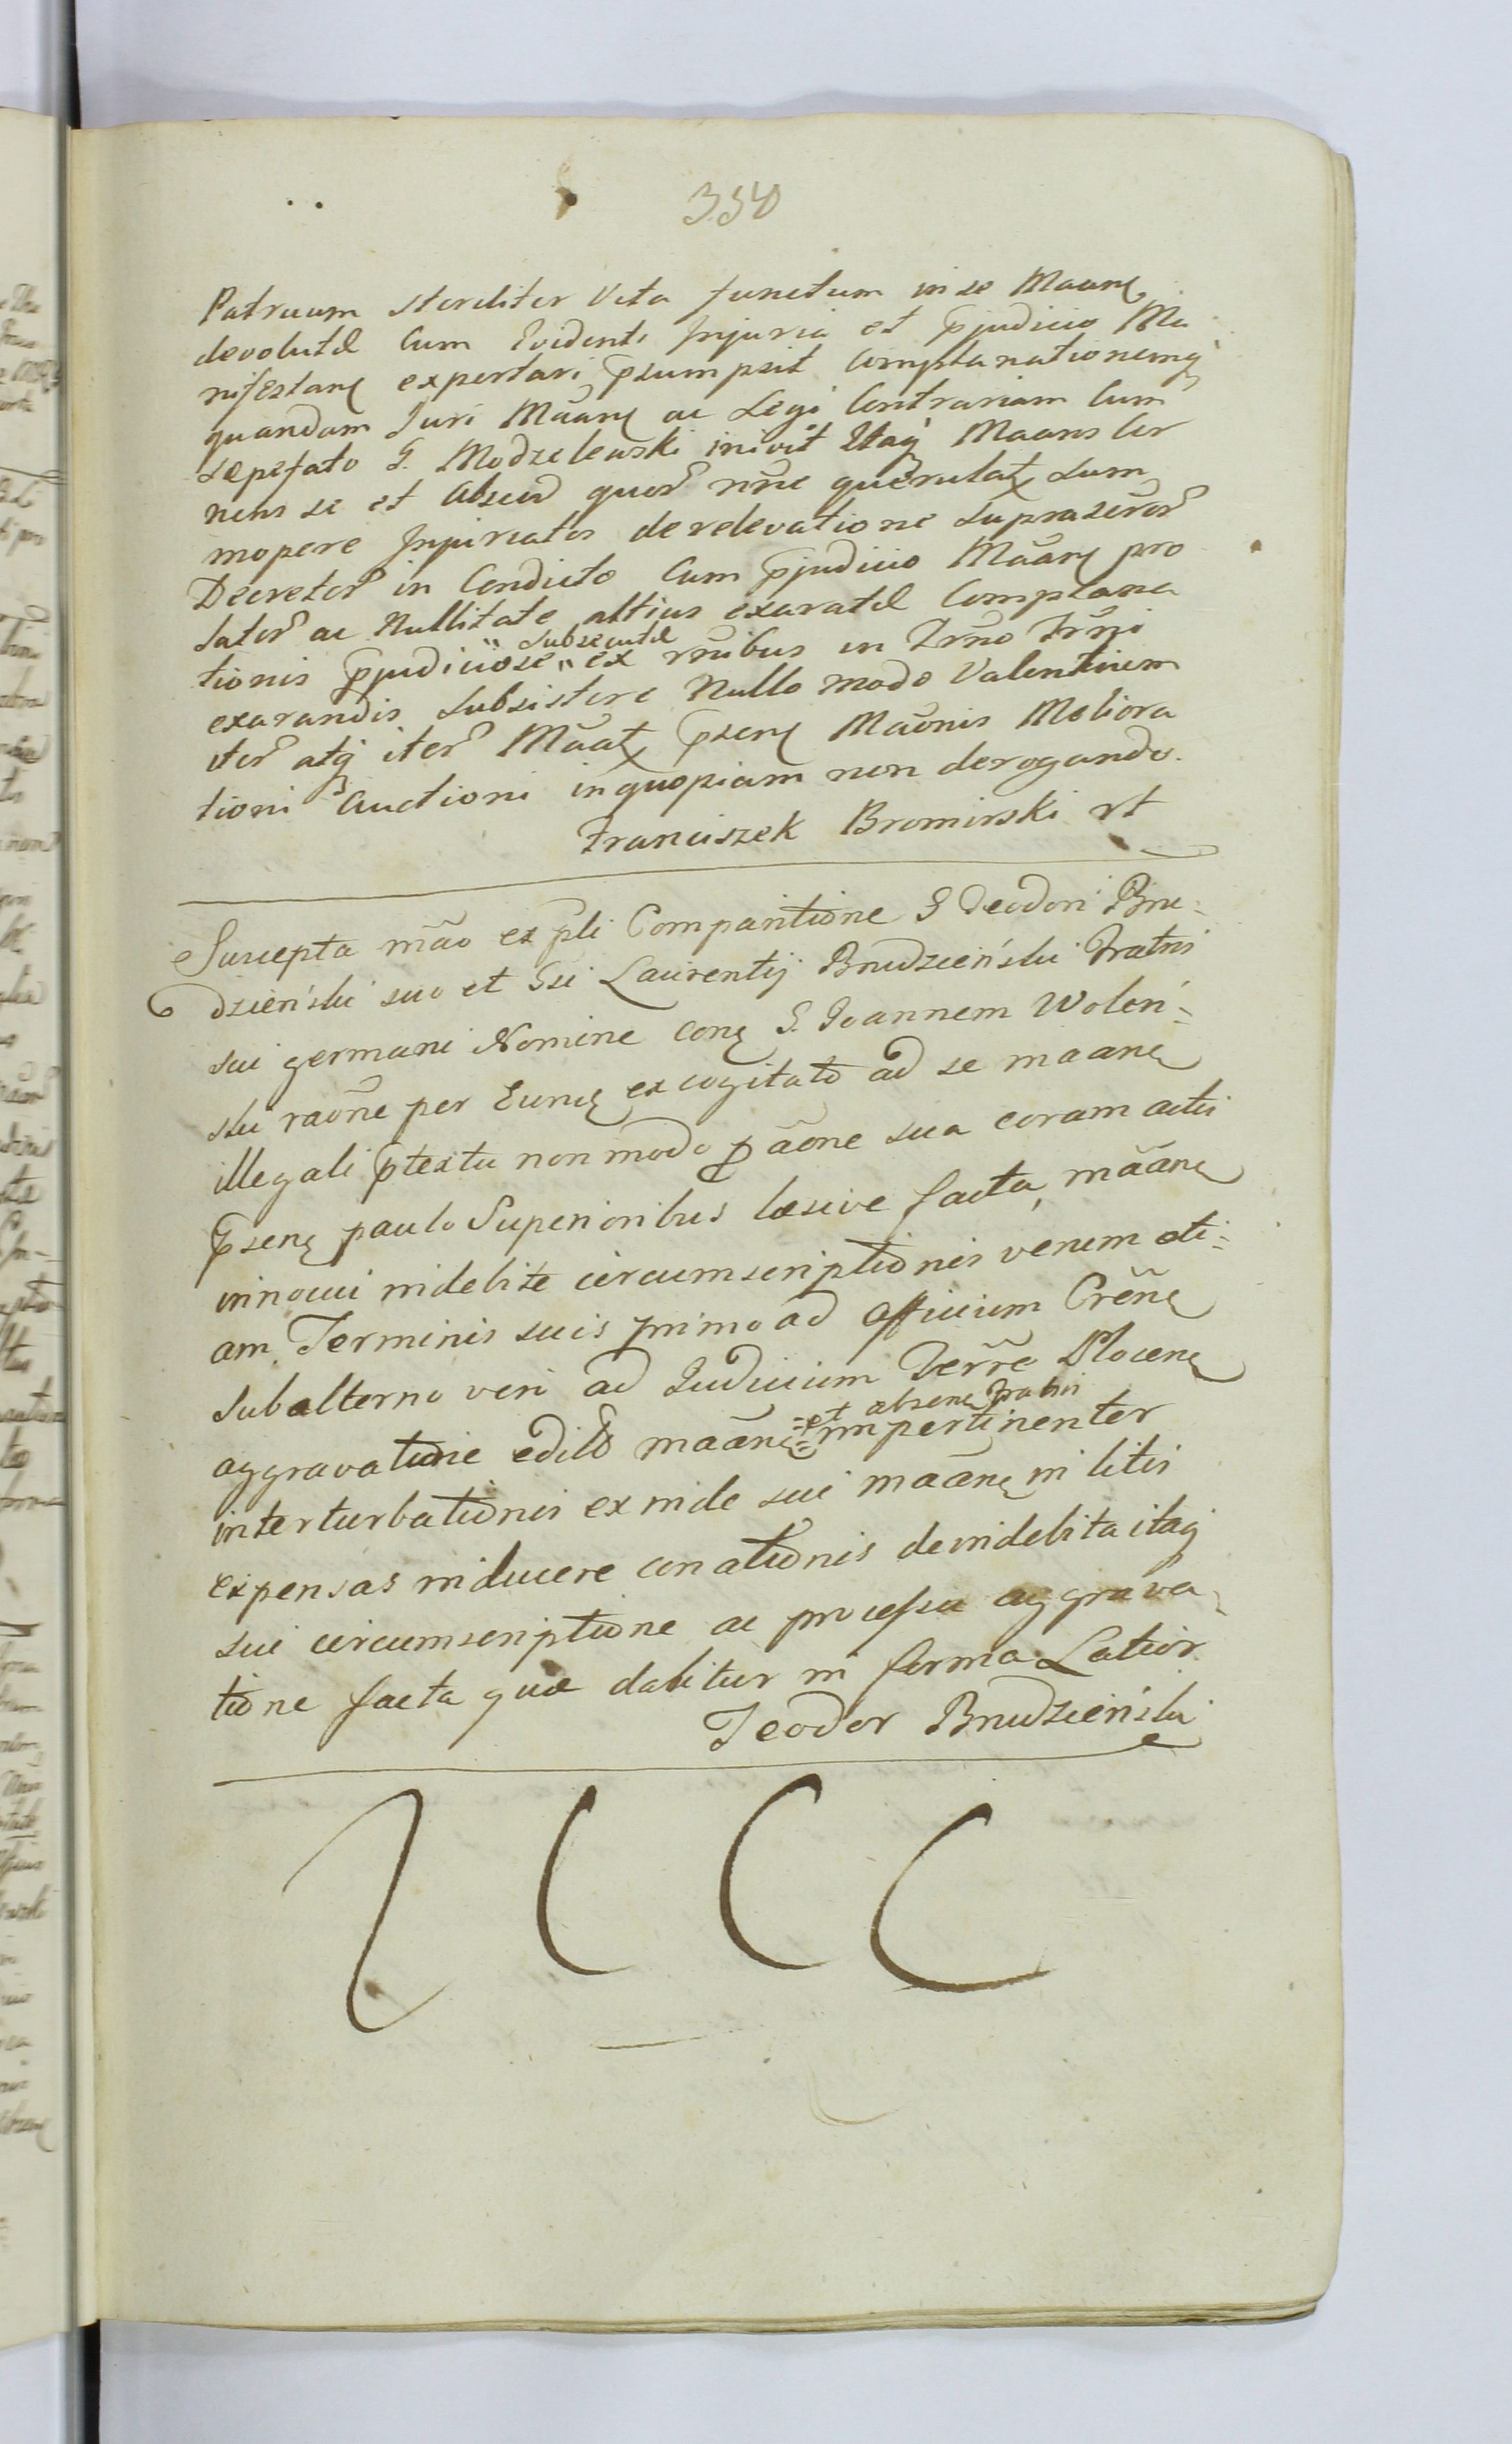 350
Patruum steriliter Vita functum in se Maanę
devolutõ Cum Evidenti Injuria et p̃judicio Ma
nifestanę expertari p̃sumpsit Complanationemq̃
quandam Juri Mãanę ac Legi Contrariam Cum
sepefato G. Modzelewski inivit Itaq̃ Maans Cer
nens se et
mopere Injuriatos de relevatione
Decretor̃ in Condicto Cum p̃judicio Mãanę pro
lator̃ ac Nullitate altius exaratæ Complana
tionis p̃judiciose " subsecutæ " ex rñibus in Trño Trñi
exarandis subsistere Nullo modo Valentium
iter̃ atq̃ iter̃ Mãatę p̃senę Mãonis Meliora
tioni Auctioni in quopiam non derogando.
Franciszek Bromirski rt
Suscepta mãõ ex pli Comparitione G Teodori Bru-
dzieński suo et Gsi Laurentij Brudzieński Fratris
sui germani Nomine conę G. Joannem Woleń-
ski raõne per Eunę excogitato ad se maanę
illegali p̃textu non modo p ãõne sua coram actis
p̃senę paulo Superioribus læsive facta, mãanę
innocui indebite circumscriptionis verum eti-
am Terminis suis primo ad Officium Crẽnę
subalterno vero ad Judicium Terrẽ Plocenę
aggravatione edito mãanę et absenę Fratris impertinenter
interturbationis exinde sui mãanę in litis
expensas inducere conationis de indebita itaq̃
sui circumscriptione ac processu aggrava-
tione facta quæ dabitur in forma Latior.
Teodor Brudzieński